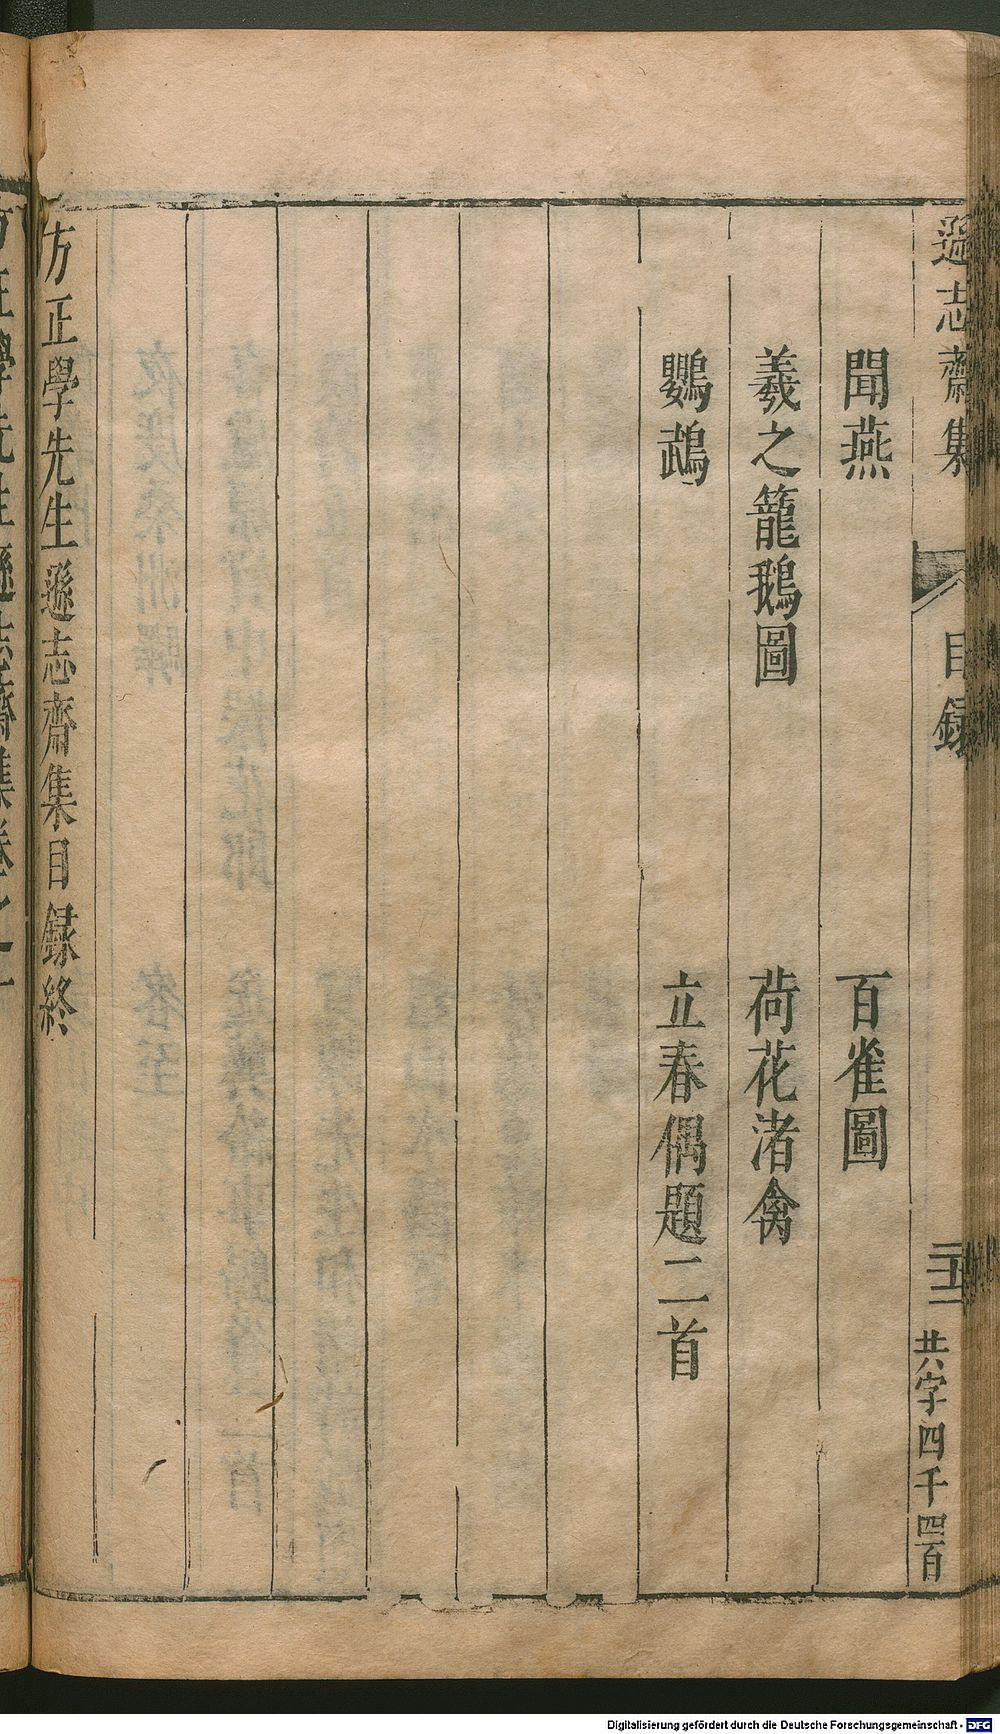 遜志齋集
目録
共字四千四百
聞燕
百雀圖
羲之籠鵝圖
荷花渚禽
鸚鵡
立春偶題二首
方正學先生遜志齋集目録終
方正學先生遜志齋集卷之一
Digitalisierung gefördert durch die Deutsche Forschungsgemeinschaft - DFG